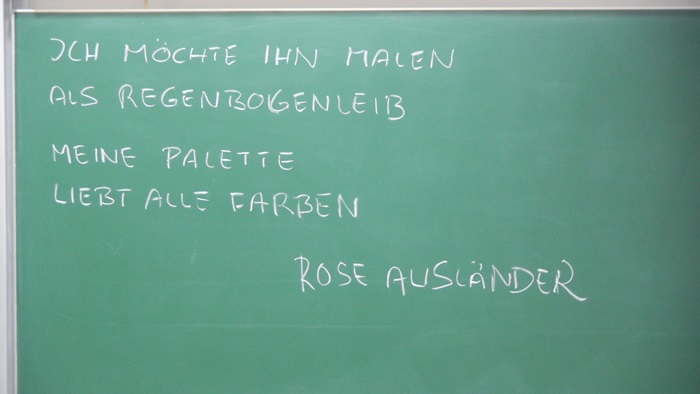 ICH MÖCHTE IHN MALEN
ALS REGENBOGENLEIB
MEINE PALETTE
LIEBT ALLE FARBEN
ROSE AUSLÄNDER